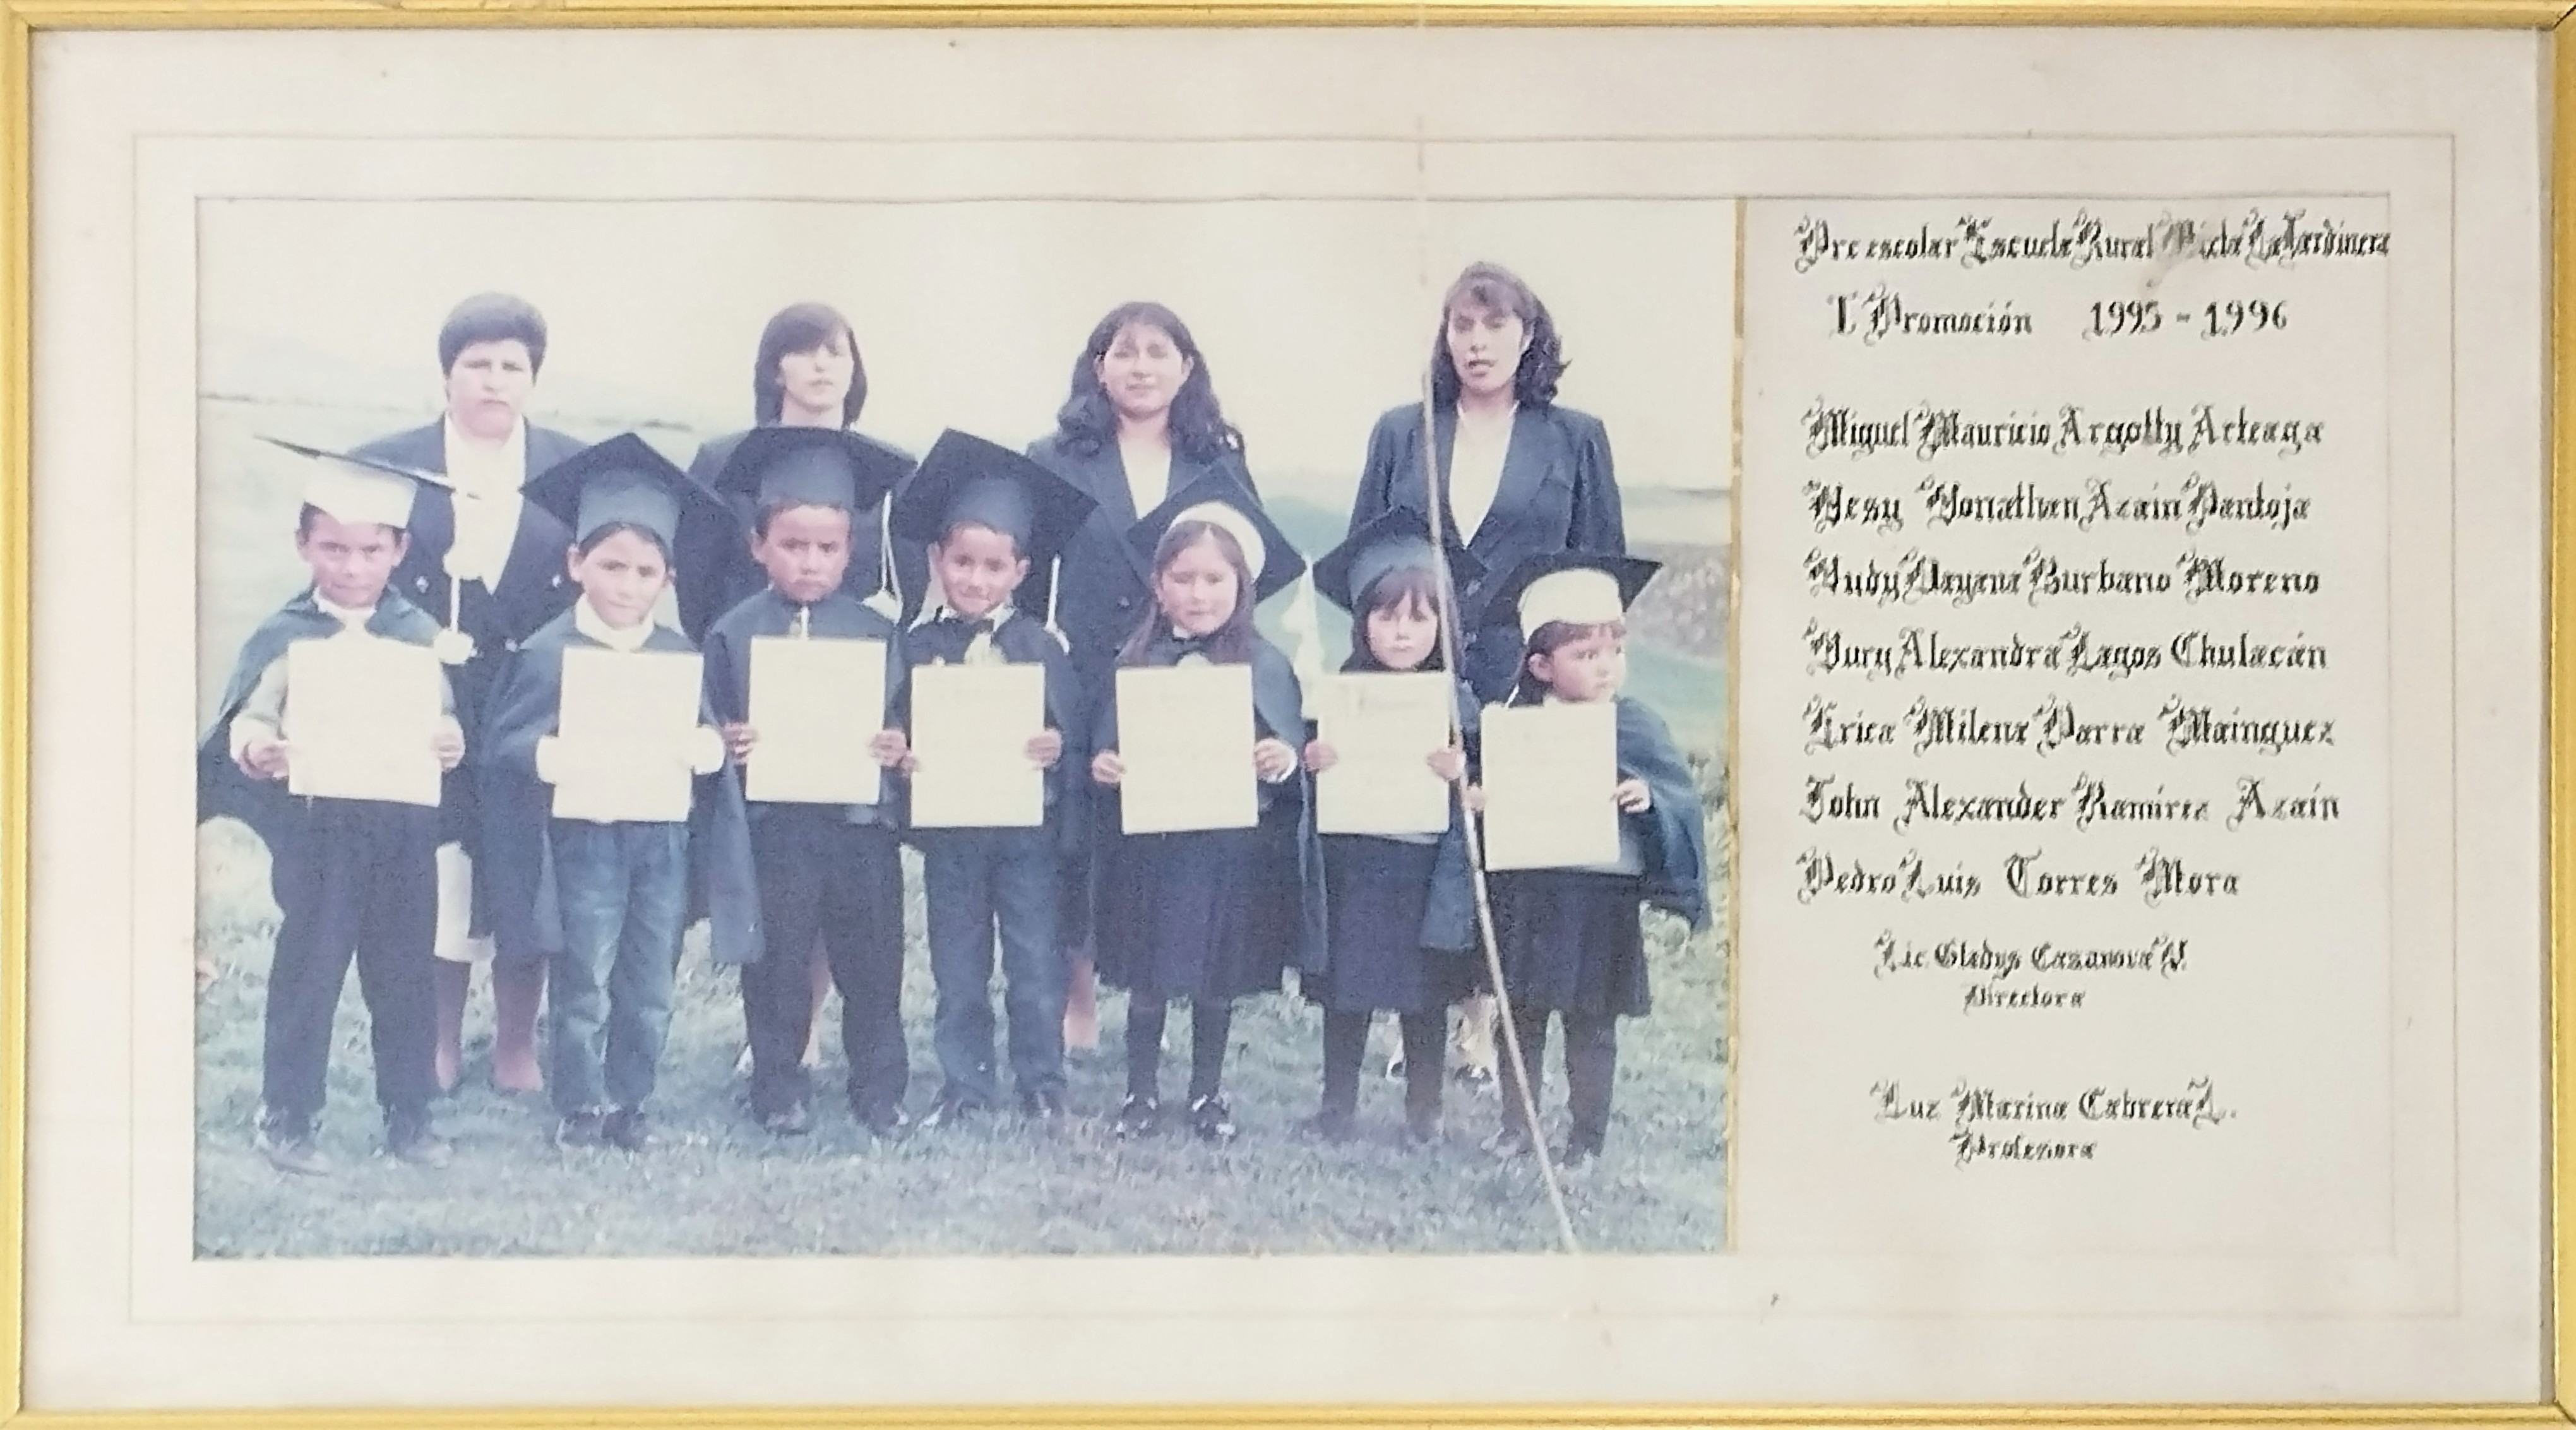 Pre escolar Escuela Rural Mixta La Jardinera
I Promoción 1995 - 1996
Miguel Mauricio Argotty Arteaga
Yesy Yonathan Azain Pantoja
Yudy Dayana Burbano Moreno
Yury Alexandra Lagos Chulacán
Erica Milena Parra Mainguez
John Alexander Ramírez Azain
Pedro Luis Torres Mora
Lic. Gladys Casanova
Directora
Luz Marina Cabrera L.
Profesora